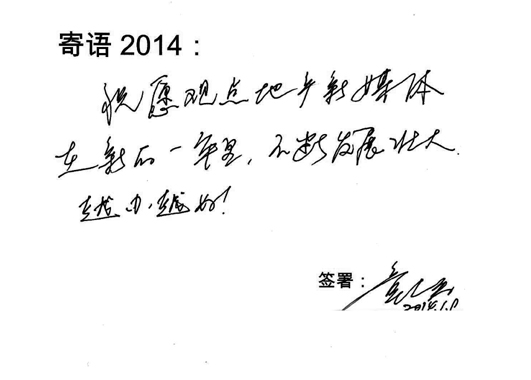 寄语 2014：
祝愿观点地产新媒体
在新的一年里，不断发展壮大
越办越好！
签署：
2014.1.8